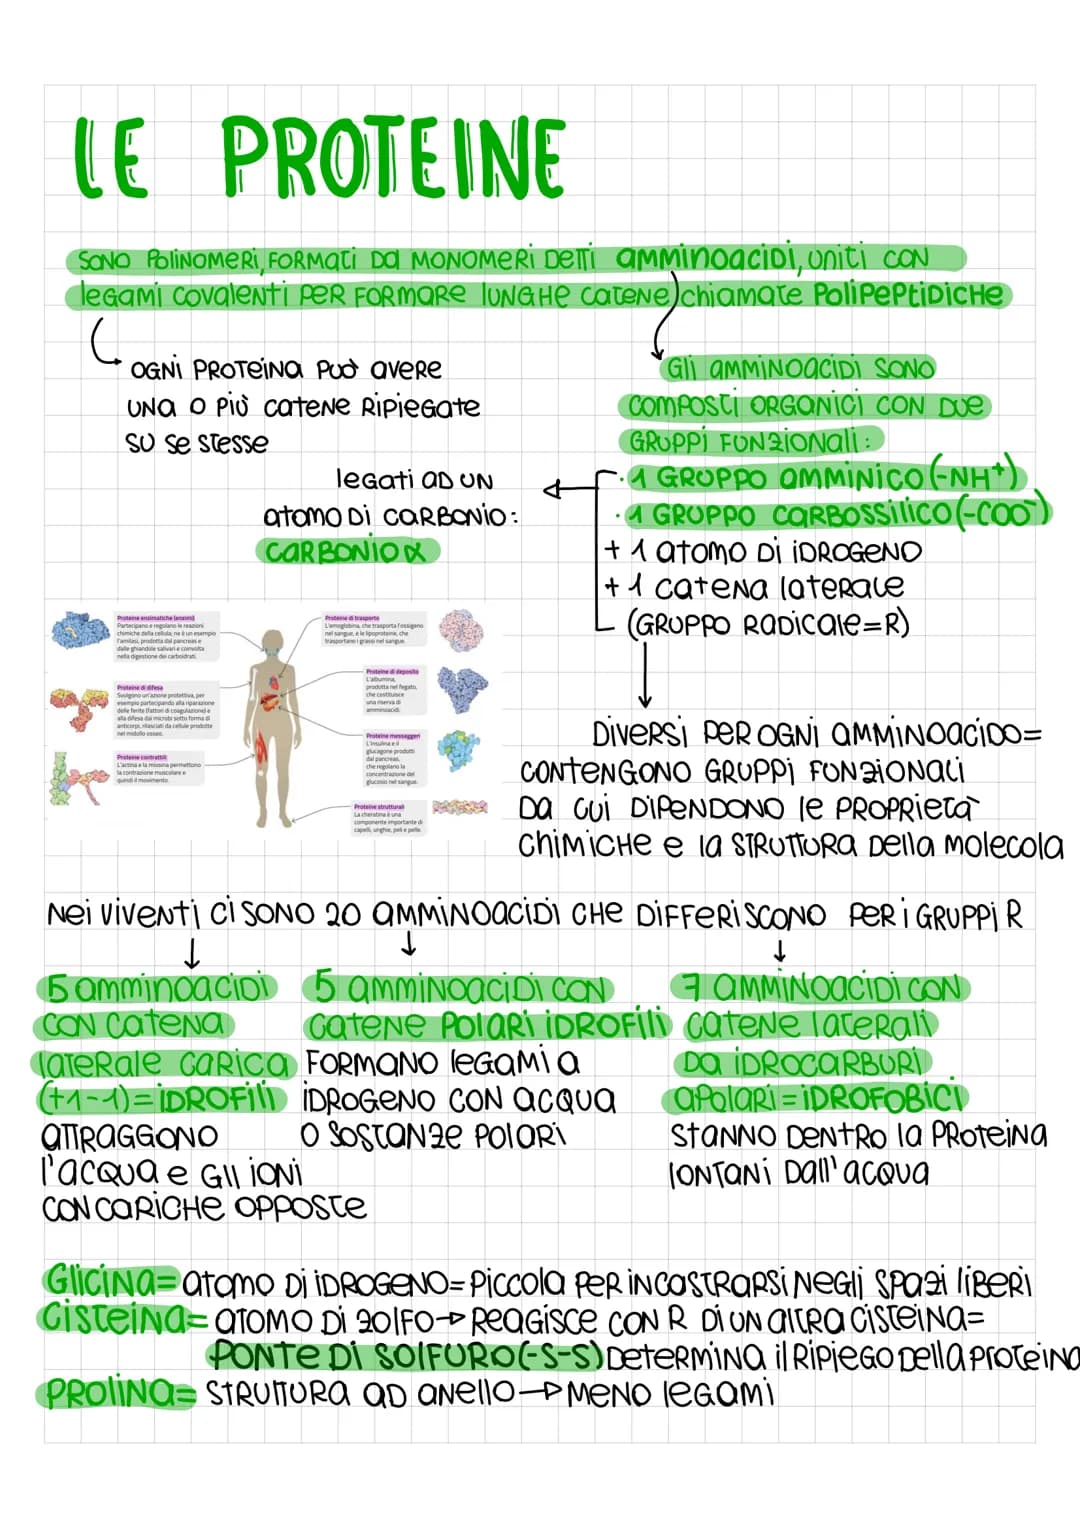 LE PROTEINE
SONO POLINOMERI, FORMATI DA MONOMERI DETTI AMMINOACIDI, UNITI CON
LEGAMI COVALENTI PER FORMARE LUNGHE CATENE, CHIAMATE POLIPEPTIDICHE
OGNI PROTEINA PUÒ AVERE
UNA O PIÙ CATENE RIPIEGATE
SU SE STESSE
GLI AMMINOACIDI SONO
COMPOSTI ORGANICI CON DUE
GRUPPI FUNZIONALI:
· 1 GRUPPO AMMINICO (-NH⁺)
· 1 GRUPPO CARBOSSILICO (-COO⁻)
+ 1 ATOMO DI IDROGENO
+ 1 CATENA LATERALE
(GRUPPO RADICALE=R)
LEGATI AD UN
ATOMO DI CARBONIO:
CARBONIO α
Proteine enzimatiche (enzimi)
Partecipano e regolano le reazioni
chimiche della cellula; ne è un esempio
l'amilasi, prodotta dal pancreas e
dalle ghiandole salivari e coinvolta
nella digestione dei carboidrati.
Proteine di difesa
Svolgono un'azione protettiva, per
esempio partecipando alla riparazione
delle ferite (fattori di coagulazione) e
alla difesa dai microbi sotto forma di
anticorpi, rilasciati da cellule prodotte
nel midollo osseo.
Proteine contrattili
L'actina e la miosina permettono
la contrazione muscolare e
quindi il movimento.
Proteine di trasporto
L'emoglobina, che trasporta l'ossigeno
nel sangue, e le lipoproteine, che
trasportano i grassi nel sangue.
Proteine di deposito
L'albumina,
prodotta nel fegato,
che costituisce
una riserva di
amminoacidi.
Proteine messaggeri
L'insulina e il
glucagone prodotti
dal pancreas,
che regolano la
concentrazione del
glucosio nel sangue.
Proteine strutturali
La cheratina è una
componente importante di
capelli, unghie, peli e pelle.
DIVERSI PER OGNI AMMINOACIDO=
CONTENGONO GRUPPI FUNZIONALI
DA CUI DIPENDONO LE PROPRIETÀ
CHIMICHE E LA STRUTTURA DELLA MOLECOLA
NEI VIVENTI CI SONO 20 AMMINOACIDI CHE DIFFERISCONO PER I GRUPPI R
5 AMMINOACIDI
CON CATENA
LATERALE CARICA
(+1-1)= IDROFILI
ATTRAGGONO
L'ACQUA E GLI IONI
CON CARICHE OPPOSTE
5 AMMINOACIDI CON
CATENE POLARI IDROFILI
FORMANO LEGAMI A
IDROGENO CON ACQUA
O SOSTANZE POLARI
7 AMMINOACIDI CON
CATENE LATERALI
DA IDROCARBURI
APOLARI=IDROFOBICI
STANNO DENTRO LA PROTEINA
LONTANI DALL'ACQUA
GLICINA= ATOMO DI IDROGENO= PICCOLA PER INCASTRARSI NEGLI SPAZI LIBERI
CISTEINA= ATOMO DI ZOLFO→ REAGISCE CON R DI UN ALTRA CISTEINA=
PONTE DI SOLFURO(-S-S) DETERMINA IL RIPIEGO DELLA PROTEINA
PROLINA= STRUTTURA AD ANELLO→ MENO LEGAMI